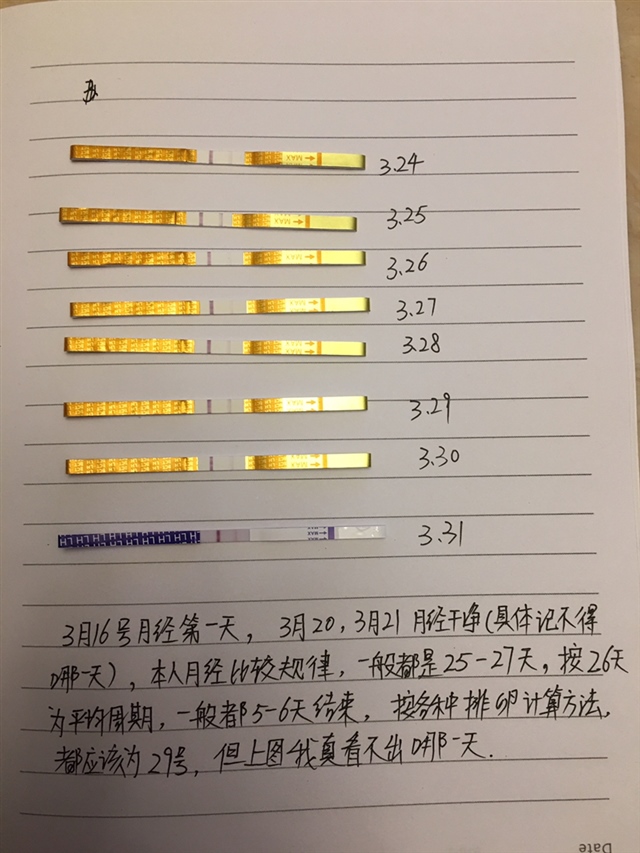 3.24
3.25
3.26
3.27
3.28
3.29
3.30
3.31
MAX
MAX
MAX
MAX
MAX
MAX
3月16号月经第一天，3月20，3月21月经干净(具体记不得
哪一天)，本人月经比较规律，一般都是25-27天，按26天
为平均周期，一般都5-6天结束，按各种排卵计算方法，
都应该为29号，但上图我真看不出哪一天.
Date